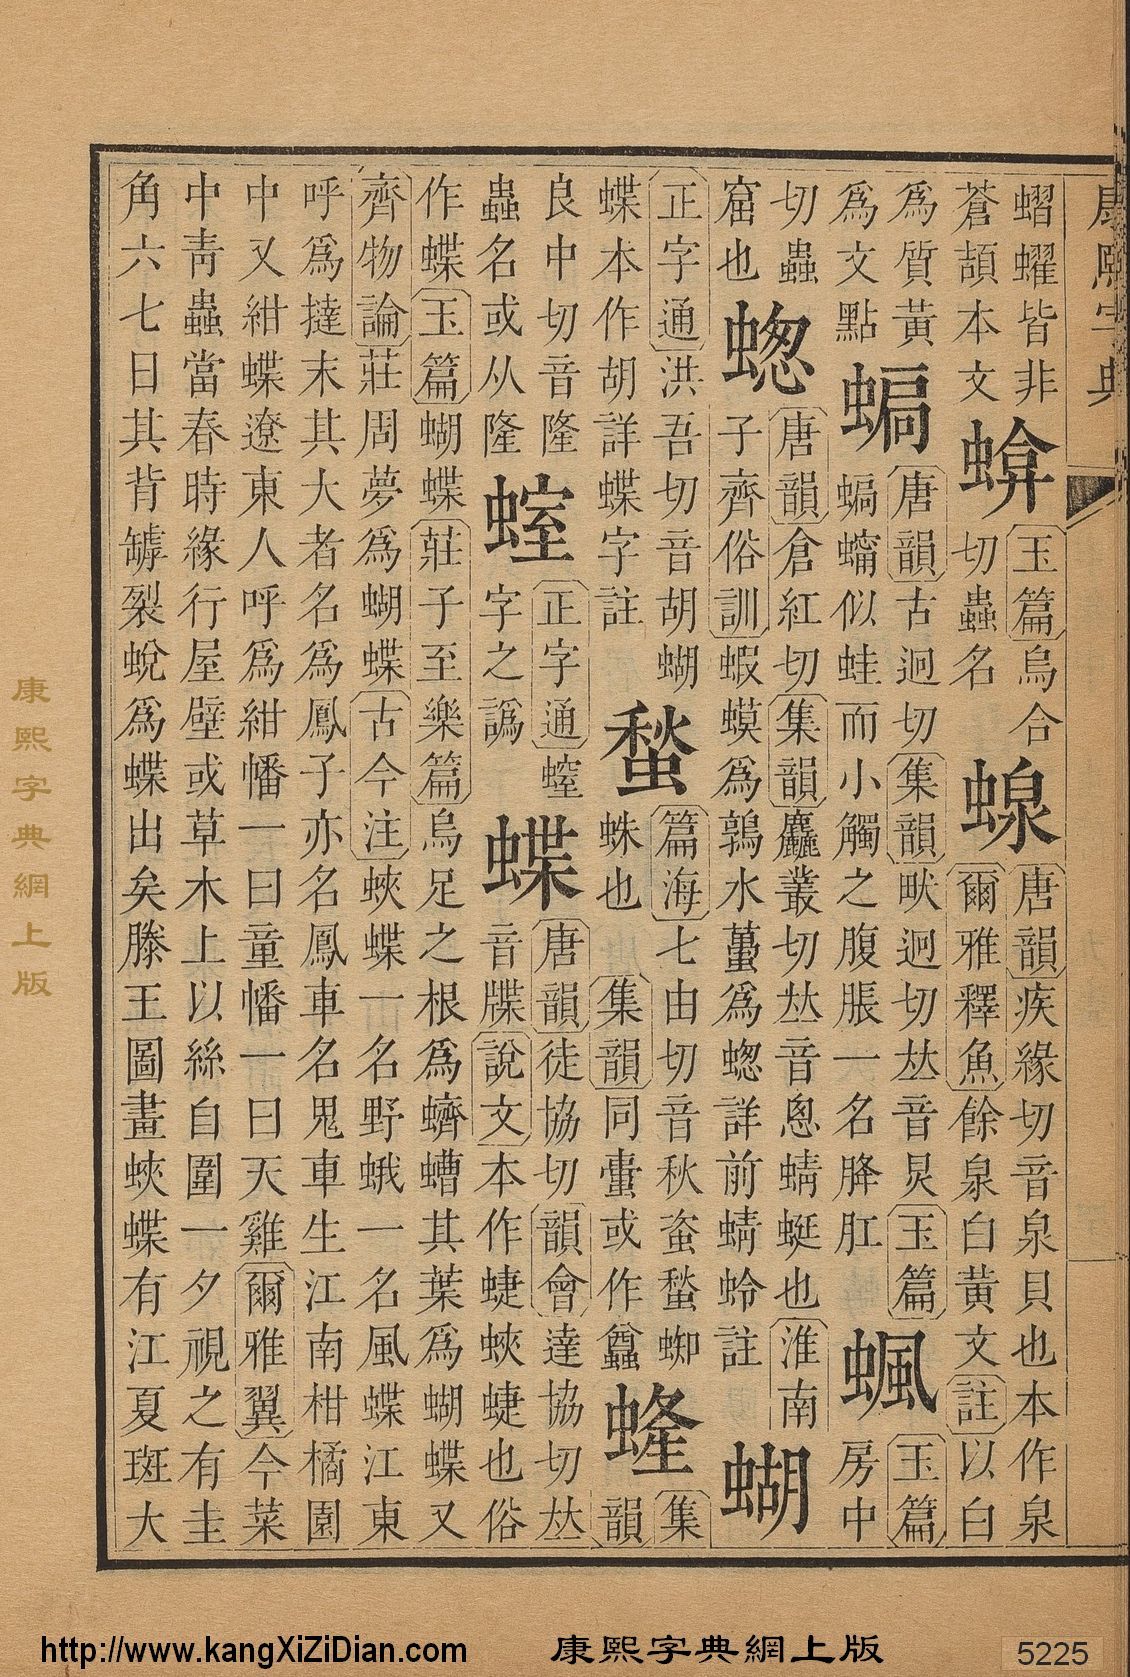 康熙字典
蠗皆非
蒼頡本文
玉篇烏合
切蟲名
唐韻疾緣切音泉貝也本作泉
爾雅釋魚餘泉白黃文註以白
為質黃
為文點
唐韻古迥切集韻畎迥切𠀤音炅玉篇
似蛙而小觸之腹脹一名胮肛
玉篇
房中
切蟲
窟也
蟌
唐韻倉紅切集韻麤叢切𠀤音悤蜻蜓也淮南
子齊俗訓蝦蟆為鶉水蠆為蟌詳前蜻蛉註
蝴
正字通洪吾切音胡蝴
蝶本作胡詳蝶字註
蝵
篇海七由切音秋蚉蝵蜘
蛛也集韻同或作蠤
集韻
良中切音隆
蟲名或从隆
正字通
字之譌
蝶
唐韻徒協切韻會達協切𠀤
音牒說文本作蜨蛺蜨也俗
作蝶玉篇蝴蝶莊子至樂篇烏足之根為蠐螬其葉為蝴蝶又
齊物論莊周夢為蝴蝶古今注蛺蝶一名野蛾一名風蝶江東
呼為撻末其大者名為鳳子亦名鳳車名鬼車生江南柑橘園
中又紺蝶遼東人呼為紺幡一曰童幡一曰天雞爾雅翼今菜
中靑蟲當春時緣行屋壁或草木上以絲自圍一夕視之有圭
角六七日其背罅裂蛻為蝶出矣滕王圖畫蛺蝶有江夏斑大
康熙字典網上版
http://www.kangXiZiDian.com
康熙字典網上版
5225